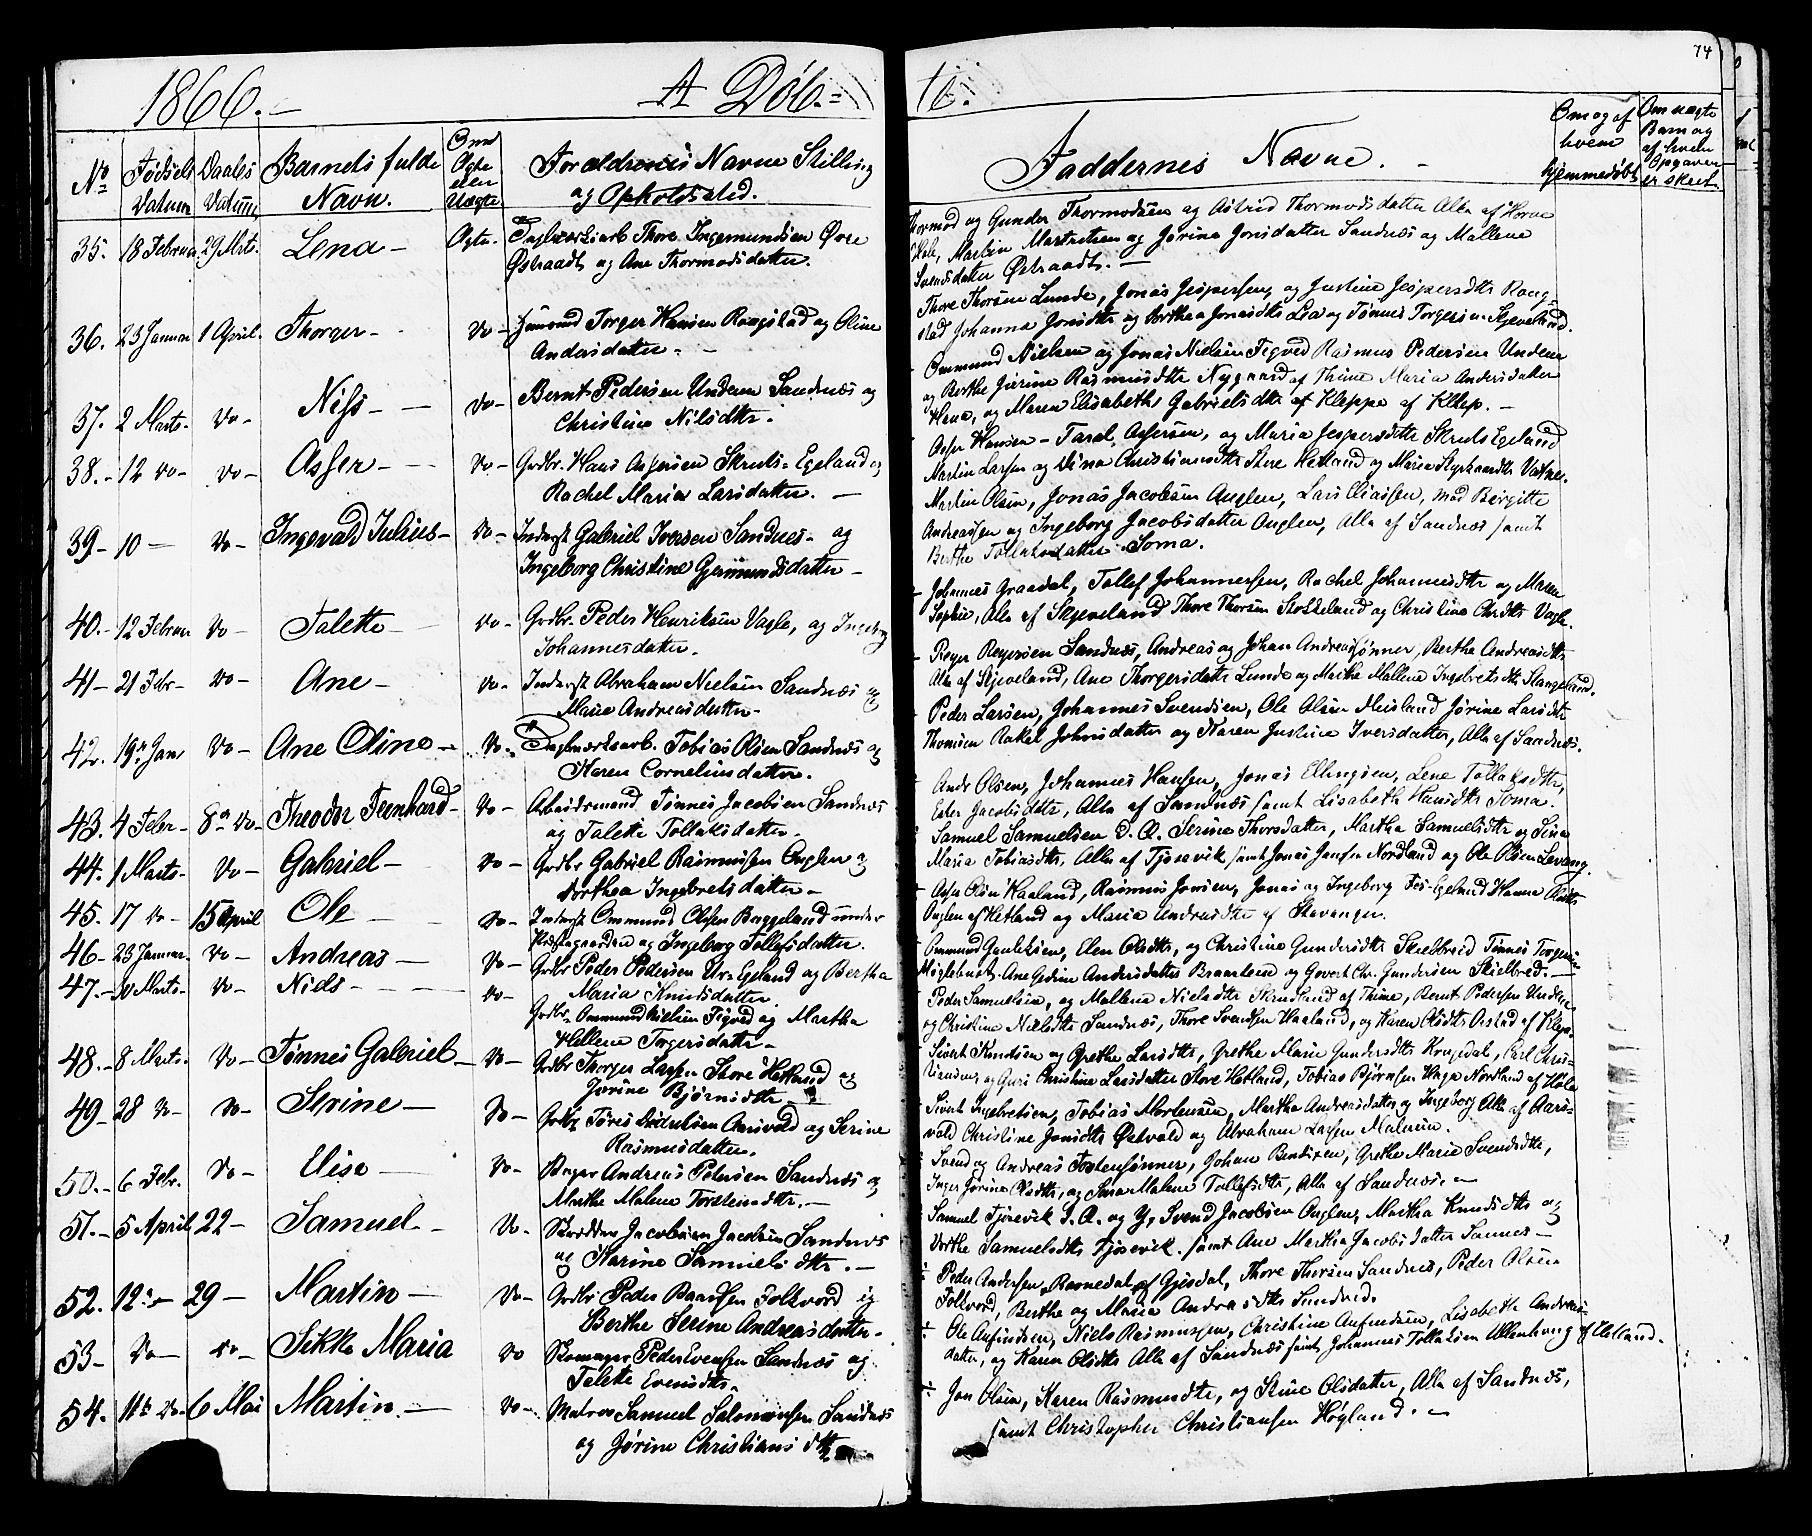 74
1866.- A Døb- te.
No
Fødsels Datum
Daabs Datum
Barnets fulde Navn.
Om Ægte eller Uægte
Forældrenes Navne Stilling og Opholdssted.
Faddernes Navne. -
Om og af hvem hjemmedøbt
Om uægte Barn og af hvem Opgaven er skret.
35. 18 Februar 29 Mrts. Lena - Ægte. Teglværksarb Thore Ingemundsen Øvre
Østraadt og Ane Thormodsdatter.
Thormod og Gunder Thormodsen og Astrid Thormodsdatter Alle af Horve
Hole, Martin Martinsen og Jørine Jonsdatter Sandnæs og Mallene
Svendsdatter Østraadt. -
36. 23 Januar 1 April. Thorger - Do - Husmand Torger Hansen Rougstad og Oline
Andersdatter. -
Thore Thorsen Lunde, Jonas Jespersen, og Justine Jespersdtr Roug-
stad Johanna Jonsdtr og Berthea Jonasdtr Lea og Tønnes Torgersen Skjeveland.
37. 2 Marts - Do - Nils - Do - Bernt Pedersen Undem Sandnæs og
Christine Nilsdtr.
Ommund Nielsen og Jonas Nielsen Figved Rasmus Pedersen Undem
og Berthe Jørine Rasmusdtr Nygaard af Thime Maria Andersdatter
Hana, og Maren Elisabeth Gabrielsdtr af Kleppe af Klep. -
38. - 12 Do - Do - Asser - Do - Grdbr. Hans Assersen Skruts-Egeland og
Rachel Maria Larsdatter. -
Asser Hansen - Taral Assersen, og Maria Jespersdtr Skruts Egeland
Martin Larsen og Dina Christiansdtr Store Hetland og Maria Styrkaardtr Vatne.
39 - 10 - Do - Ingevald Julius - Do - Inderst Gabriel Iversen Sandnes - og
Ingeborg Christine Gjermundsdatter -
Martin Olsen, Jonas Jacobsen Auglen, Lars Eliassen, med Birgitte
Andreassen og Ingeborg Jacobsdatter Auglen, Alle af Sandnæs samt
Berthe Tollaksdatter Soma.
40. - 12 Februar Do - Talette - Do - Grdbr. Peder Henriksen Vagle, og Ingeborg
Johannesdatter.
Johannes Graadal, Tollef Johannessen, Rachel Johannesdtr og Maren
Sophie, Alle af Skjeveland Thore Thorsen Stokkeland og Christine Chrdtr Vagle.
41 - 21 Febr - Do - Ane - Do - Inderst Abraham Nielsen Sandnæs og
Marie Andreasdatter -
Reyer Reyersen Sandnæs, Andreas og Johan Andreassønner, Berthe Andreasdtr
Alle af Skjeveland, Ane Thorgersdatter Lunde og Marthe Mallene Ingebretsdtr Stangeland.
42. 19de Jan Do - Ane Oline - Do - Teglværksarb. Tobias Olsen Sandnæs og
Karen Corneliusdatter.
Peder Larsen, Johannes Svendsen, Ole Olsen Meisland Jørine Larsdtr
Thomsen Rakel Johnsdatter og Karen Justine Iversdatter, Alle af Sandnæs.
43. 4 Febr - 8de Do - Theodor Fernhard - Do - Arbeidsmand Tønnes Jacobsen Sandnæs
og Talette Tollaksdatter -
Andr Olsen, Johannes Hansen, Jonas Ellingsen, Lene Tollaksdtr,
Ester Jacobsdatr, Alle af Sandnæs samt Lisabeth Hansdtr Soma.
44. 1 Marts - Do - Gabriel - Do - Grdbr Gabriel Rasmussen Auglen og
Dorthea Ingebretsdatter -
Samuel Samuelsen D. Æ. Serine Thorsdatter, Martha Samuelsdtr og Sina
Maria Tobiasdtr, Alle af Tjosevik samt Jonas Jansen Nordland og Ole Olsen Levang.
45. 17 Do - 15 April Ole - Do - Inderst Ommund Olsen Buggeland under
Præstegaarden og Ingeborg Tollefsdatter.
Asser Olsen Haaland, Rasmus Jonsen, Jonas og Ingeborg Egelund Hanne
Auglen af Hetland og Maria Andreasdtr af Stavanger.
46 - 23 Januar - Do - Andreas - Do - Grdbr Peder Pedersen Ur-Egeland og Bertha
Maria Knudsdatter
Ommund Gauteksen, Elen Olsdtr, og Christine Gundersdtr Skielbreid Tønnes Torgersen
Høglebust - Ane Gurine Andersdatter Braasteen og Govert Chr. Gundersen Skielbred. -
47. - 20 Marts - Do - Niels - Do - Grdbr Ommund Nielsen Figved og Martha
Hellene Torgersdatter -
Peder Samuelsen, og Mallene Nielsdtr Skrudland af Thime, Bernt Pedersen Undem
og Christine Nielsdtr Sandnæs, Thore Svendsen Haaland, og Karen Olsdtr Orstad af Klep.
48. - 8 Marts - Do - Tønnes Gabriel - Do - Grdbr Thorger Larsen Store Hetland og
Jørine Bjørnsdtr -
Sivert Knudsen og Grethe Larsdtr, Grethe Marie Gundersdtr Krogedal, Carl Chris-
tiansen og Guri Christine Larsdatter Store Hetland, Tobias Bjørnsen Hage Nordland af Høle
49 - 28 Do - Do - Serine - Do - Grdbr Tøres Endresen Aarsvold og Serine
Rasmusdatter.
Sivert Ingebretsen, Tobias Mortensen, Martha Andreasdatter og Ingeborg Alle af Aars-
vold Christine Jonsdtr Østvold og Abraham Larsen Malmin.
50. - 6 Febr. Do - Elise - Do - Bager Andreas Petersen Sandnæs og
Marthe Malene Torsteinsdtr. -
Svend og Andreas Tostensønner, Johan Bendixen, Grethe Marie Svendsdtr,
Inger Jørine Olsdtr, og Malene Tollefsdtr, Alle af Sandnæs. -
51. - 5 April 22 - Samuel - Do - Skrædder Jacob Jacobsen Sandnæs
og Karine Samuelsdtr. -
Samuel Tjosevik D. Æ. og Y, Svend Jacobsen Auglen, Martha Knudsdtr og
Dorthe Samuelsdtr Tjosevik. samt Ane Martha Jacobsdatter Sannes -
52. 12te - 29 - Martin - Do - Grdbr Peder Baardsen Folkvord og
Berthe Serine Andreasdatter -
Peder Andersen Ravnedal af Gjesdal, Thore Thorsen Sandnæs, Peder Olsen
Folkvord, Berthe og Maria Andreasdtr Sandnæs.
53 - Do - Do - Sikke Maria Do Skomager Peder Evensen Sandnæs og
Talette Evensdtr.
Ole Aufindsen, Niels Rasmussen, Christine Aufindsen, Lisabeth Andreas-
datter, og Karen Olsdtr Alle af Sandnæs samt Johannes Tollaksen Ullenhaug af Hetland.
54. 11te Do - 6 Mai Martin. - Do - Matros Samuel Salomonsen Sandnæs
og Jørine Christiansdtr
Jon Olsen, Karen Rasmusdtr, og Stine Olsdatter, Alle af Sandnæs,
samt Christopher Christiansen Høyland. -